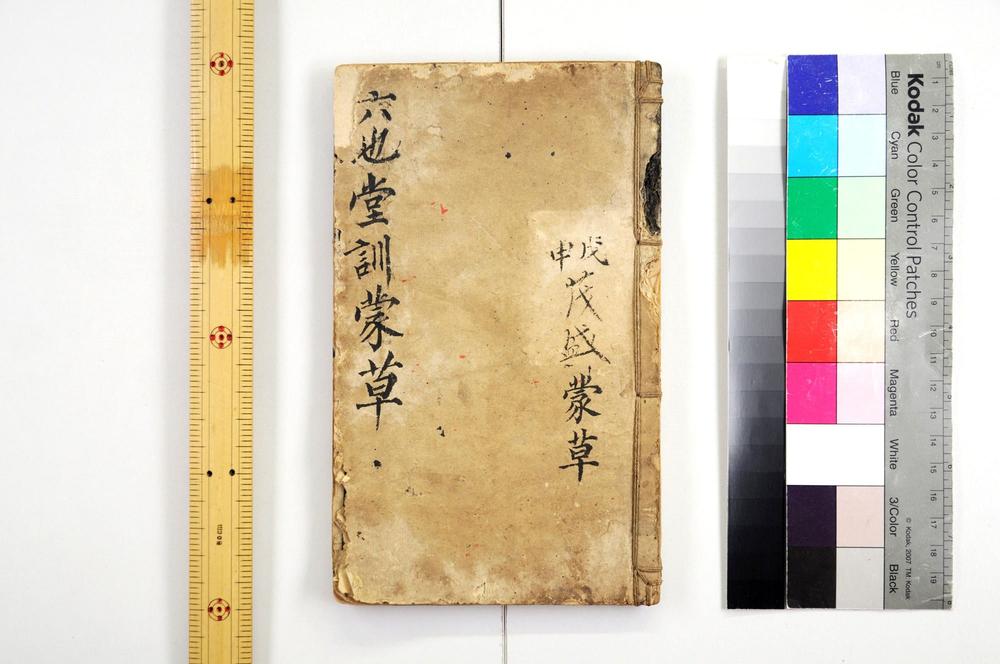 六也堂訓蒙草
戊申
茂盛蒙草
Kodak Color Control Patches
Blue
Cyan
Green
Yellow
Red
Magenta
White
3/Color
Black
© Kodak, 2007 TM: Kodak
1
2
3
4
5
6
7
8
9
10
11
12
13
14
15
16
17
18
19